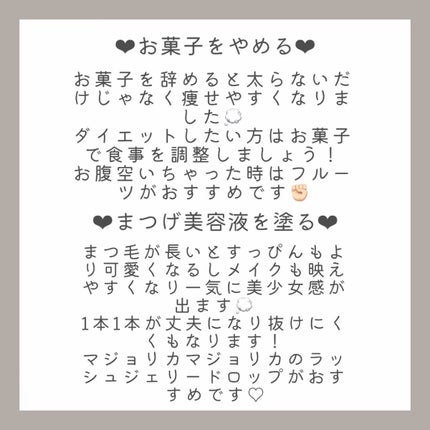 ❤お菓子をやめる❤
お菓子を辞めると太らないだ
けじゃなく痩せやすくなりま
した💭
ダイエットしたい方はお菓子
で食事を調整しましょう！
お腹空いちゃった時はフルー
ツがおすすめです✊🏻
❤まつげ美容液を塗る❤
まつ毛が長いとすっぴんもよ
り可愛くなるしメイクも映え
やすくなり一気に美少女感が
出ます💭
1本1本が丈夫になり抜けにく
くもなります！
マジョリカマジョリカのラッ
シュジェリードロップがおす
すめです♡